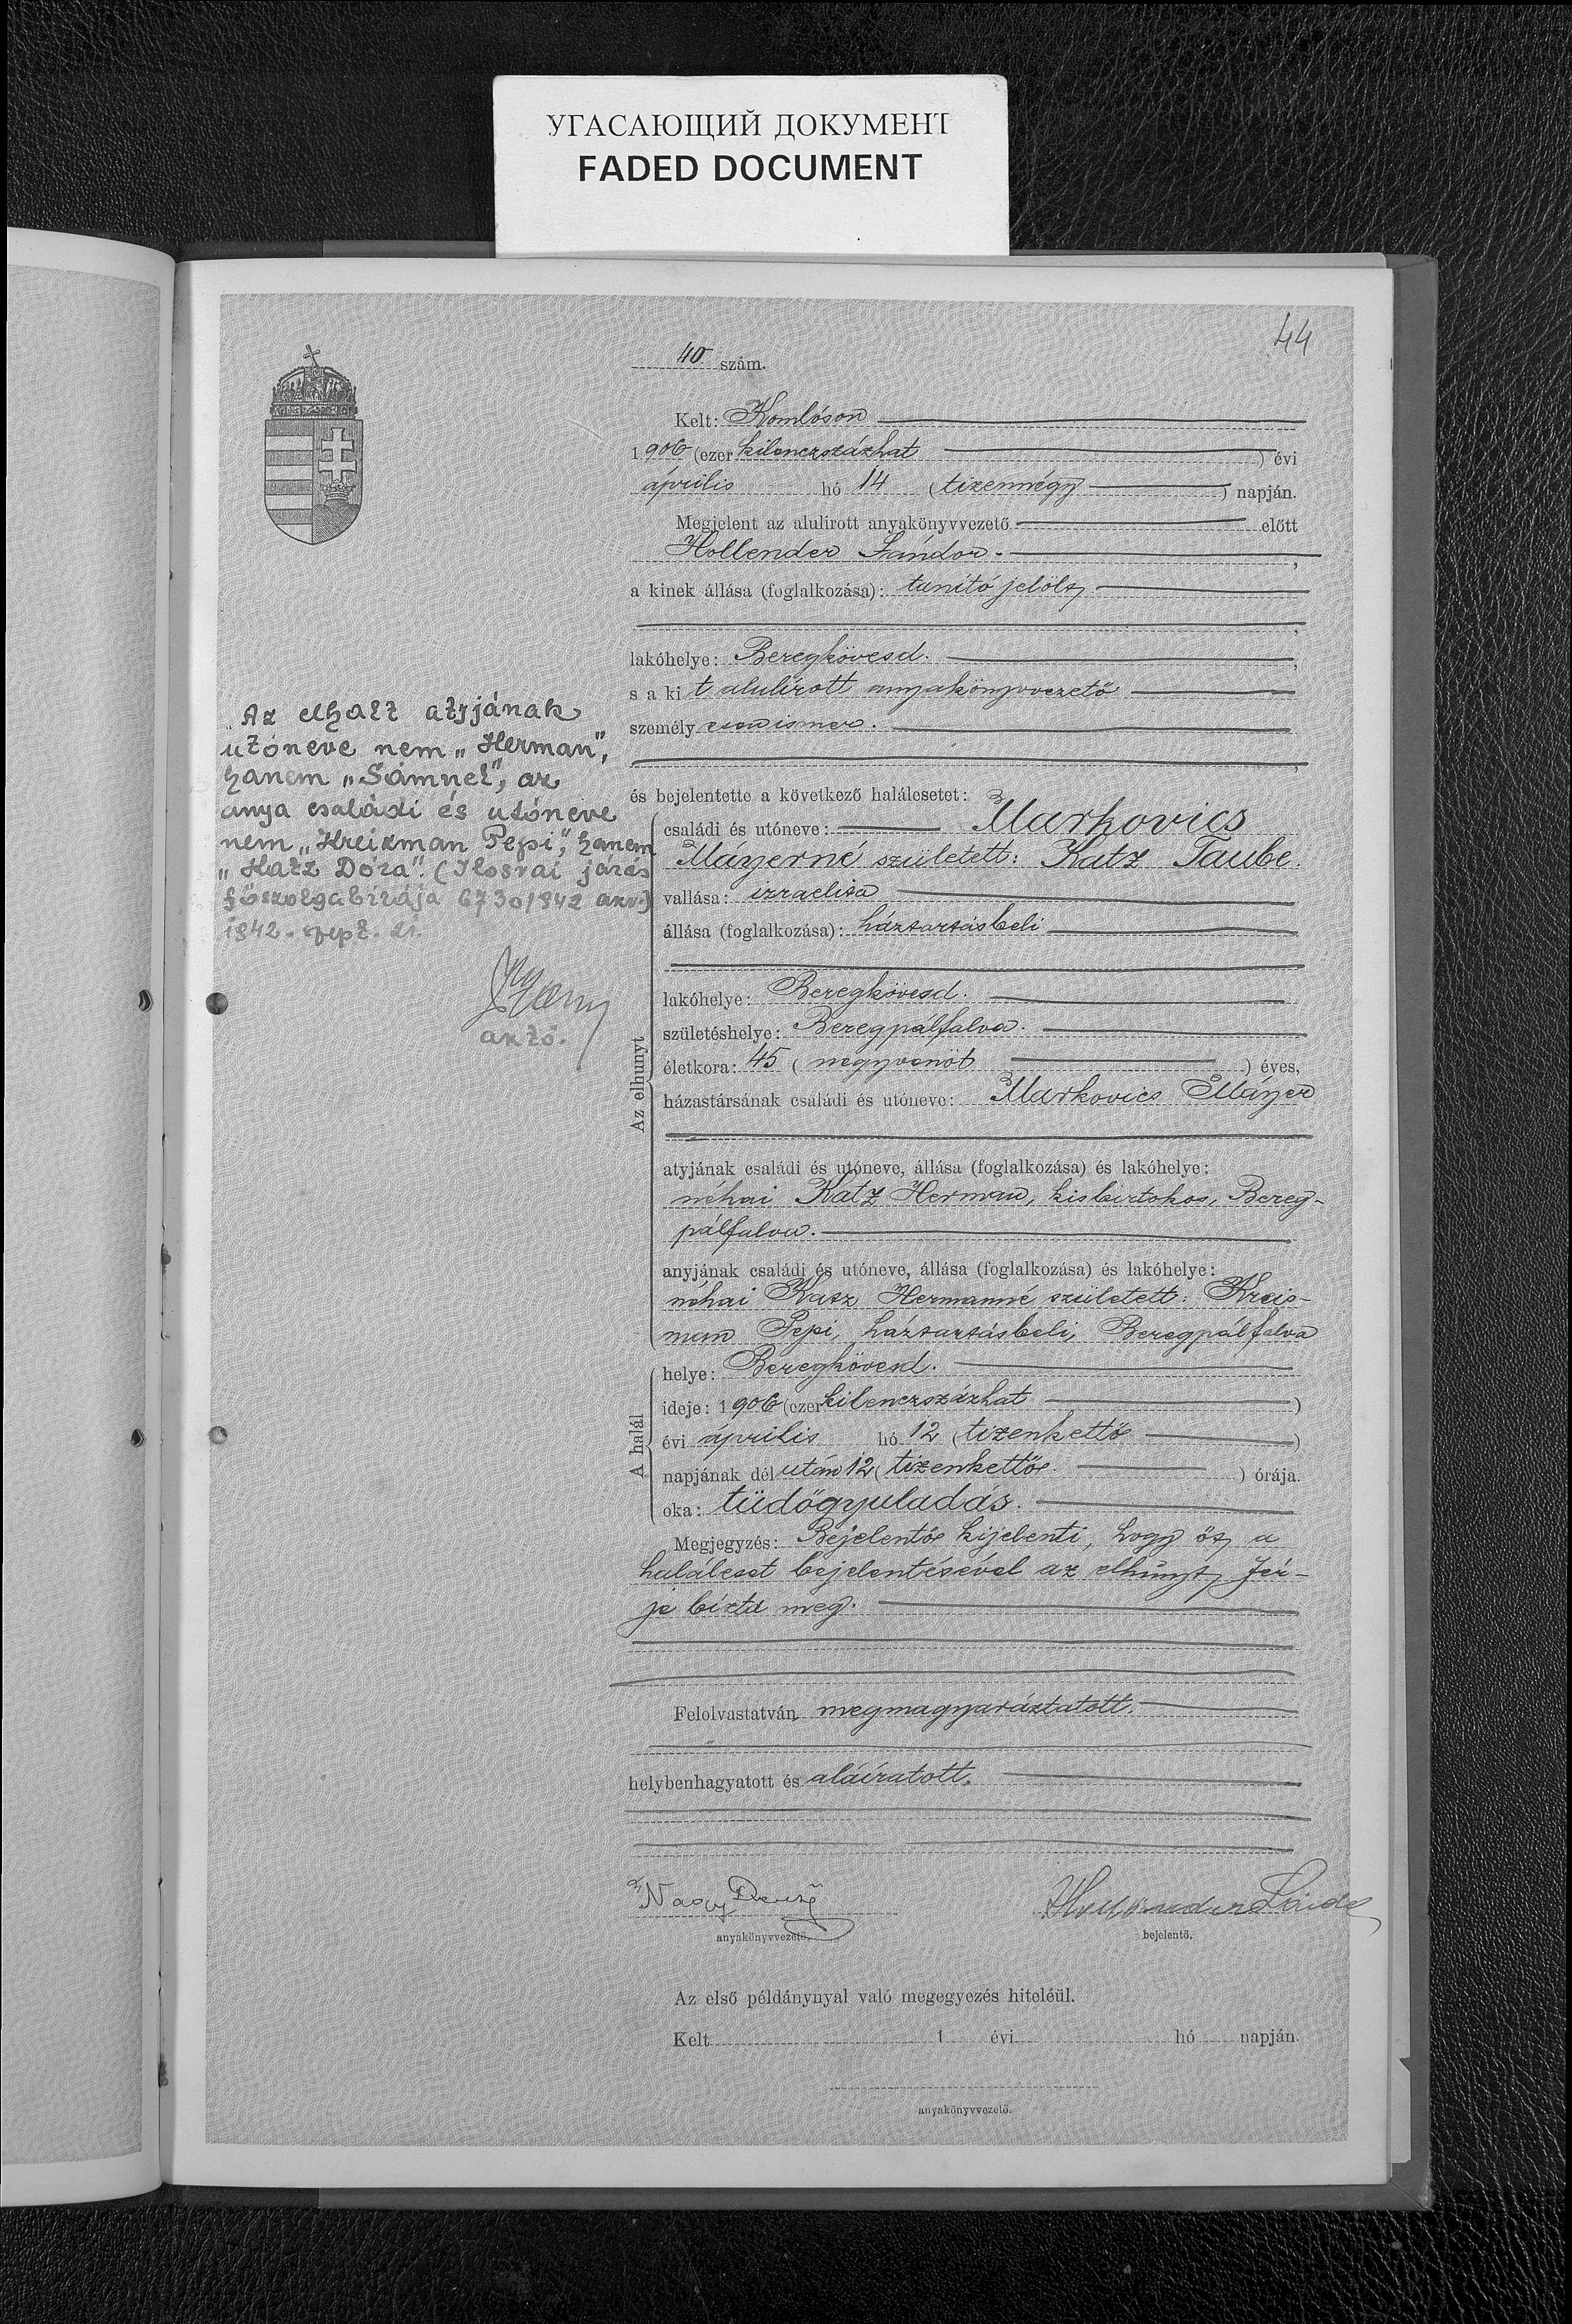 УГАСАЮЩИЙ ДОКУМЕНТ
FADED DOCUMENT
44
40 szám.
Kelt: Komlóson
1906 (ezer kilenczszázhat ) évi
április hó 14 (tizennégy ) napján.
Megjelent az alulirott anyakönyvvezető előtt
Hollender Sándor.
a kinek állása (foglalkozása): tanító jelölt,
lakóhelye: Beregkövesd.
s a kit alulírott anyakönyvvezető
személyesen ismer.
és bejelentette a következő halálesetet:
Az elhalt atyjának
utóneve nem „Herman”,
hanem „Sámuel”, az
anya családi és utóneve
nem „Kreizman Pepi”, hanem
„Katz Dóra”. (Ilosvai járás
főszolgabírája 6730/1942 akv.)
1942. szept. 21.
akző.
Az elhunyt
családi és utóneve: Markovics
Máyerné született: Katz Taube.
vallása: izraelita
állása (foglalkozása): háztartásbeli
lakóhelye: Beregkövesd.
születéshelye: Beregpálfalva.
életkora: 45 (negyvenöt ) éves,
házastársának családi és utóneve: Markovics Máyer
atyjának családi és utóneve, állása (foglalkozása) és lakóhelye:
néhai Katz Herman, kisbirtokos, Bereg-
pálfalva.
anyjának családi és utóneve, állása (foglalkozása) és lakóhelye:
néhai Katz Hermanné született: Kreiz-
man Pepi, háztartásbeli, Beregpálfalva
A halál
helye: Beregkövesd.
ideje: 1906 (ezer kilenczszázhat )
évi április hó 12 (tizenkettő )
napjának délután 12 (tizenkettő. ) órája.
oka: tüdőgyuladás.
Megjegyzés: Bejelentő kijelenti, hogy őt, a
haláleset bejelentésével az elhúnyt fér-
je bízta meg.
Felolvastatván megmagyaráztatott.
helybenhagyatott és aláíratott.
Nagy Dezső
anyakönyvvezető.
Hollender Sándor
bejelentő.
Az első példánynyal való megegyezés hiteléül.
Kelt 1 évi hó napján.
anyakönyvvezető.